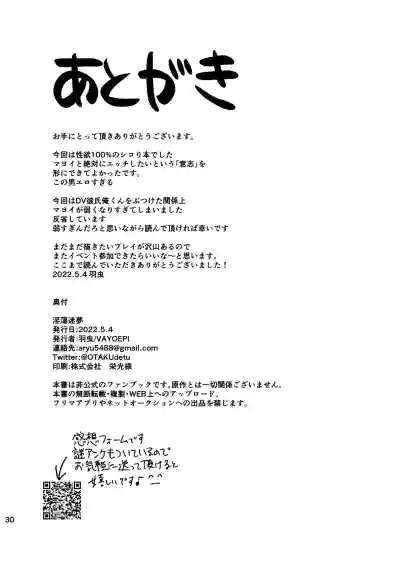 あとがき
お手にとって頂きありがとうございます。
今回は性欲100%のシコリ本でした
マヨイと絶対にエッチしたいという「意志」を
形にできてよかったです。
この男エロすぎる
今回はDV彼氏俺くんをぶつけた関係上
マヨイが弱くなりすぎてしまいました
反省しています
弱すぎんだろと思いながら読んで頂ければ幸いです
まだまだ描きたいプレイが沢山あるので
またイベント参加できたらいいな〜と思います。
ここまで読んでいただきありがとうございました！
2022.5.4 羽虫
奥付
淫蕩迷夢
発行日:2022.5.4
発行者:羽虫/VAYOEPI
連絡先:aryu5488@gmail.com
Twitter:@OTAKUdetu
印刷:株式会社　栄光様
本書は非公式のファンブックです。原作とは一切関係ございません。
本書の無断転載・複製・WEB上へのアップロード、
フリマアプリやネットオークションへの出品を禁じます。
感想フォームです
謎アンケもついているので
お気軽に送って頂けると
嬉しいです♪ ^^
30